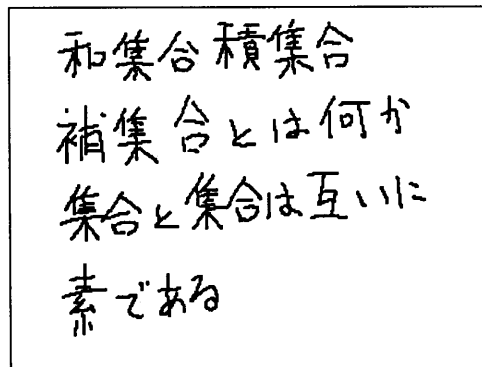 和集合積集合
補集合とは何か
集合と集合は互いに
素である